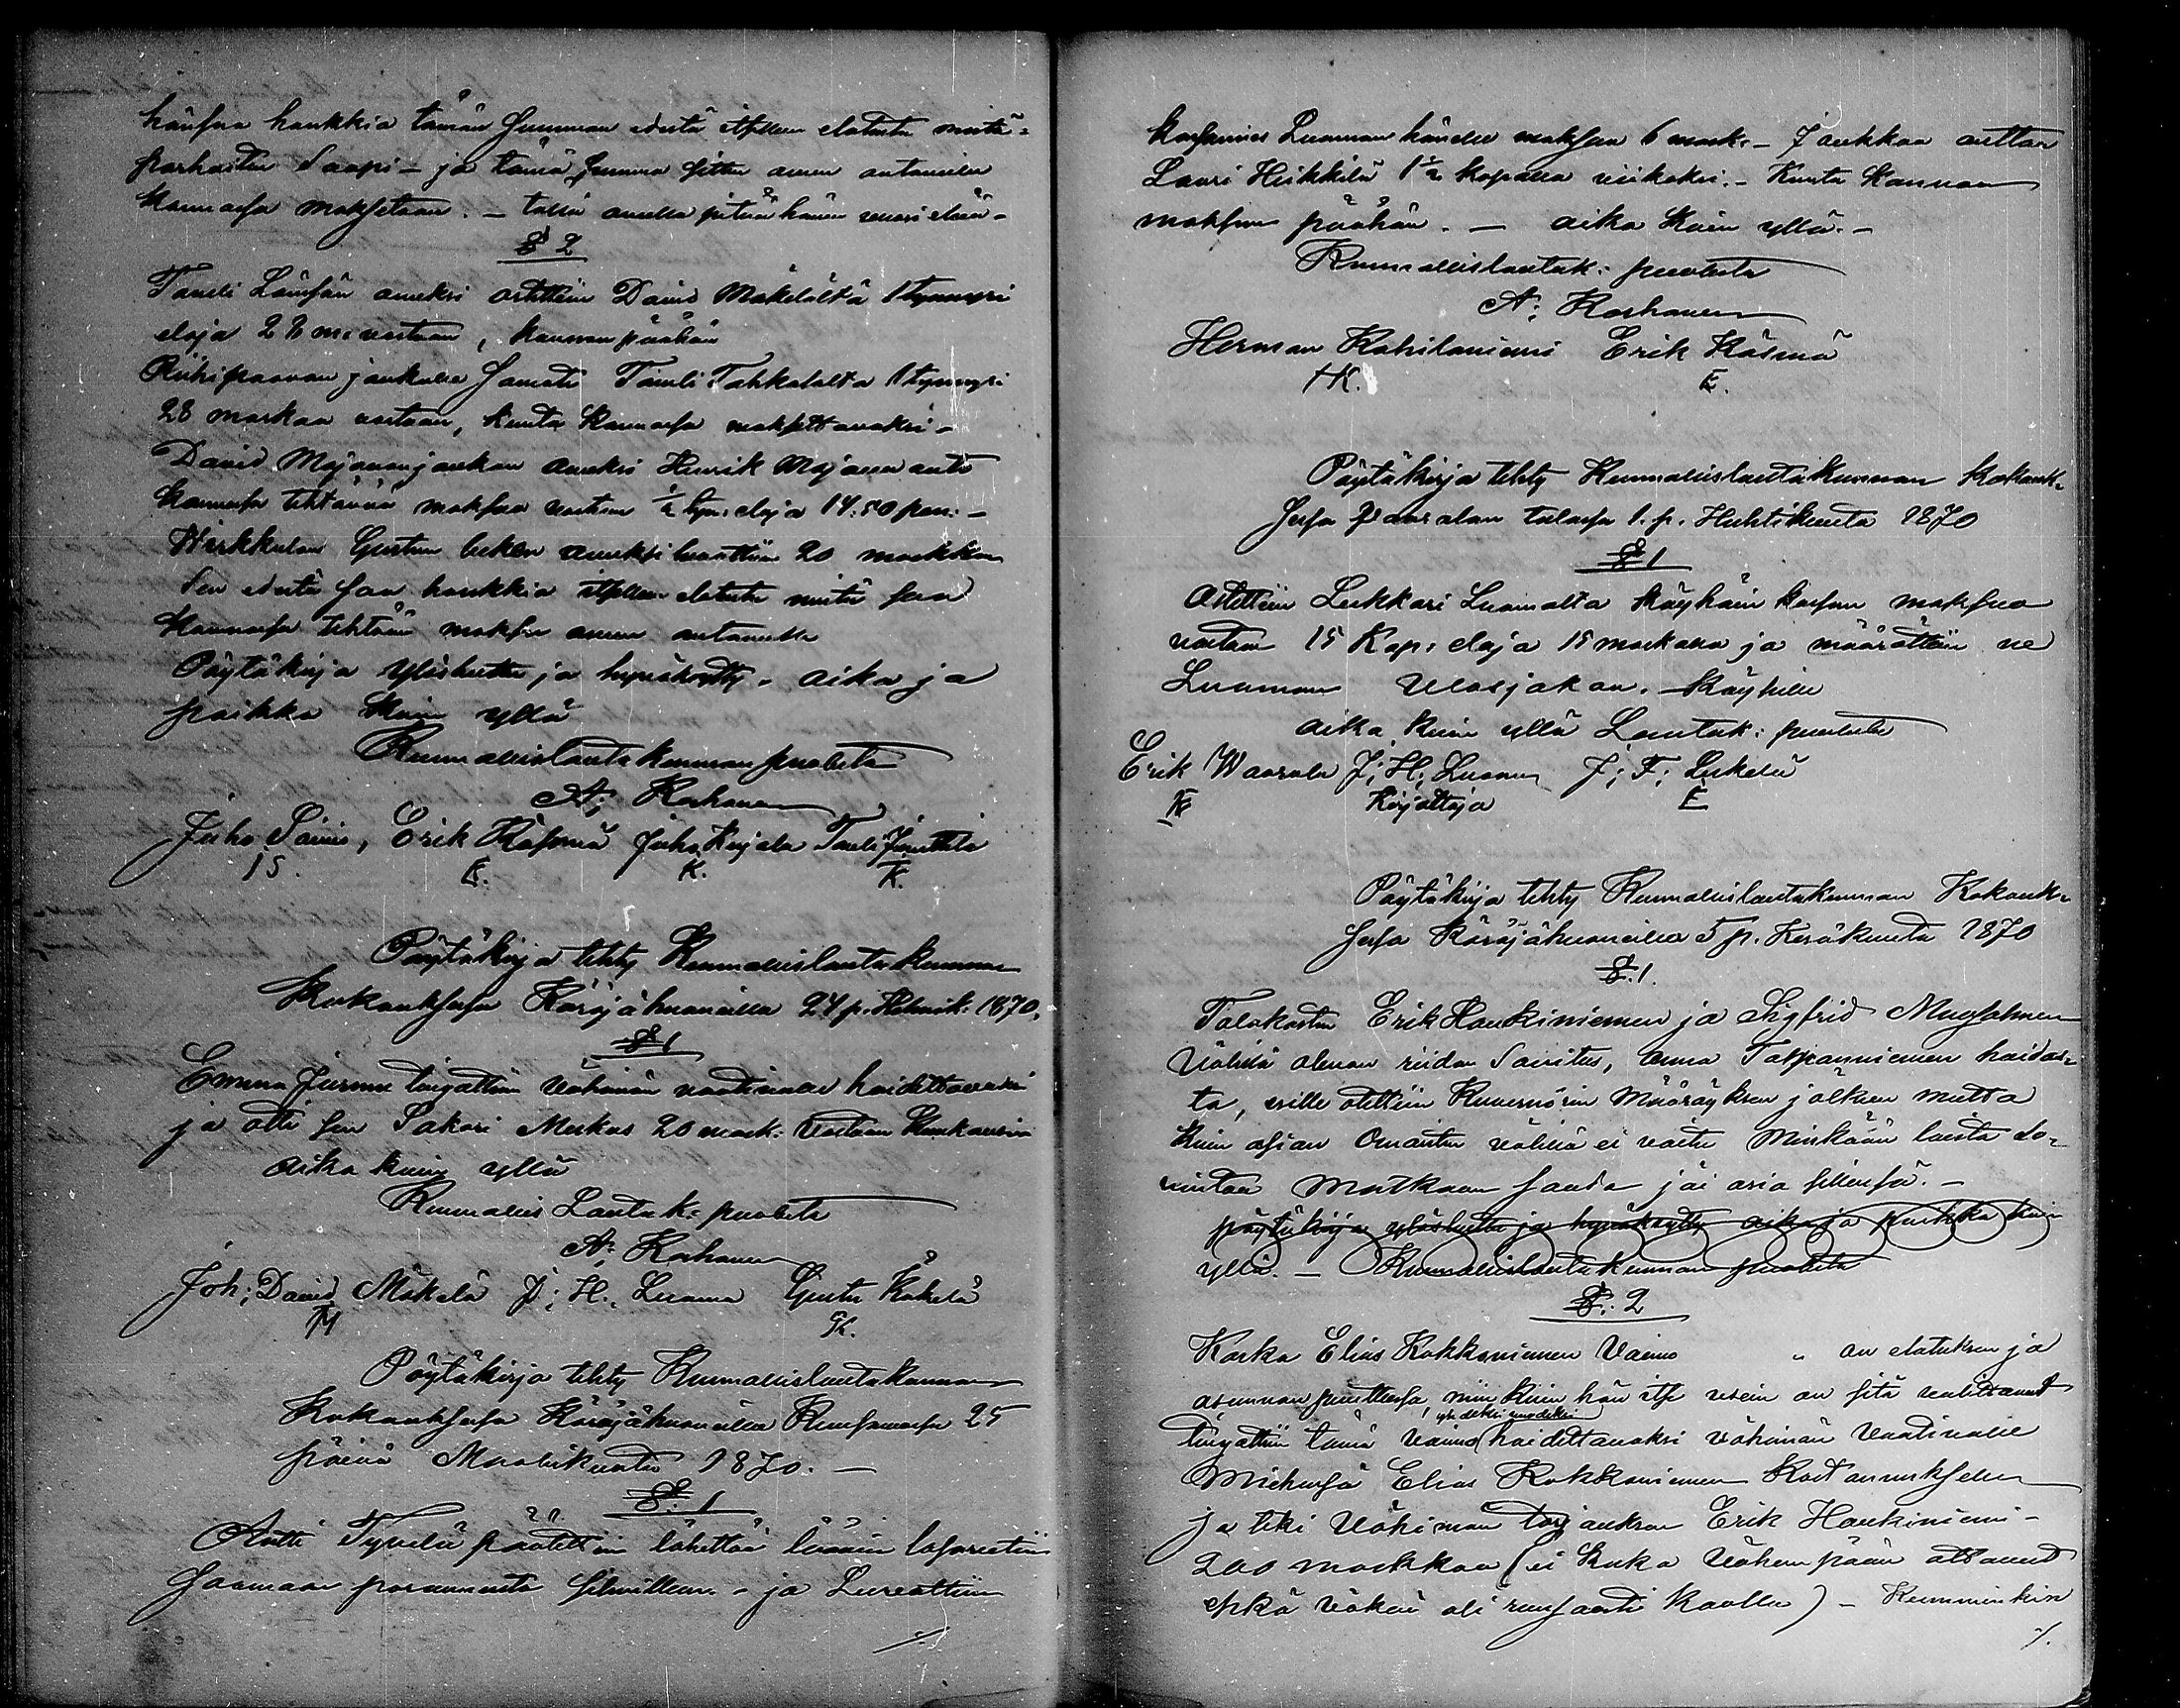 hänsaa hankkia tämän summan edestä itsellen elatusta mistä-
parhaiten saapi – ja tämä summa sitten annen antamilla
kannossa maksetaan. – tällä annella pitää hänen vuosi elää –
§ 2
Taneli Länsän aneksi ostettiin David Mäkelältä 1 tynnyri
eloja 28 m: vastaan, kannon päähän
Riihipaavan joukolle samate Taneli Tahkolalta 1 tynnyri
28 markaa vastaan, kunta kannossa maksettavaksi –
David Majavan joukon aneksi Henrik Majava anto
kannossa tehtävää maksua vastaan ½ tyn: eloja 14:50 pen: –
Wirkkulan Gustun lesken aneksi luvattiin 20 markkaa
Sen edestä saa hankkia itsellen elatusta mistä saa
kannossa tehtään maksu annen antamilla
Pöytäkirja ylösluettu ja hyväksytty. aika ja
paikka kuin yllä
Kunnallislautakunnan puolesta
A: Korhonen
Juho Säinö, Erik Käsmä Juho Kujala Taneli Junttila
I S. E. K. K.
Pöytäkirja tehty Kunnallislautakunnan
Kokouksesa Käräjähuoneella 24 p. Helmik: 1870.
§ 1
Emma Jurmu tingattiin vähimän vaativalle hoidettavaksi
ja otti sen Sakari Merkus 20 mark: vastaan
aika kuin yllä
Kunnallis Lautak: puolesta
A: Korhonen
Joh: David Mäkelä J: H: Luoma Gustu Käkelä
M K.
Pöytäkirja tehty Kunnallislautakunnan
Kokouksesa Käräjähuoneella 25
päivä Maaliskuuta 1870. –
§: 1
Antti Tyvelä päätettiin lähettää läänin lasarettiin
Saamaan parannusta silmillen. – ja Luvattiin
./.
Luoman hänelle maksua 6 mark. – joukkoa auttaa
Lauri Heikkilä 1½ kapalla viikoksi. – Kunta kannoon
maksun päähän. – aika kuin yllä. –
Kunnallislautak: puolesta
A: Korhonen
Herman Kahilaniemi Erik Käsmä
HK. E.
Pöytäkirja tehty Kunnallislautakunnan Kokouk-
sesa Vaaralan talossa 1. p. Huhtikuuta 1870
§ 1
Ostettiin Lukkari Luomalta käyhäin kassan maksua
vastaan 15 Kap: eloja 15 markalla ja määrättiin ne
Luoman Ulosjakaa. – Käyhille
aika kuin yllä Lautak: puolesta
Erik Waarala J: H: Luoma J: F: Leskelä
K Kirjoittaja E
Pöytäkirja tehty Kunnallislautakunnan Kokouk-
sesa Käräjähuoneella 5 p. Kesäkuuta 1870
§. 1.
Talokasten Erik Haukiniemen ja Sigfrid Mursahmen
Välillä olevan riidan Savitus, Anna Tappaniniemen hoidos-
ta, esille otettiin Kuvernörin Määräyksen jälkeen mutta
kuin asian Omaisten välillä ei voitu Minkään laista so-
vintoa Matkaan saada jäi asia sillensä. –
pöytäkirja ylösluettu ja hyväksytty aika ja paikka kuin
yllä. – Kunnallislautakunnan puolesta
§: 2
Koska Elias Kokkoniemen Vaimo „ on elatuksen ja
asunnon puuttesa, niin kuin hän itse usein on sitä valittanut
yhdeksi vuodeksi
Tingattiin tämä Vaimo hoidettavaksi vähimän Vaativalle
Miehensä Elias Kokkoniemen Kostannuksella
ja teki Vähimän tarjouksen Erik Haukiniemi –
200 markkaa (ei kuka vähempään ottanut
ehkä väkeä oli runsaasti koolla) – Kumminkin
./.